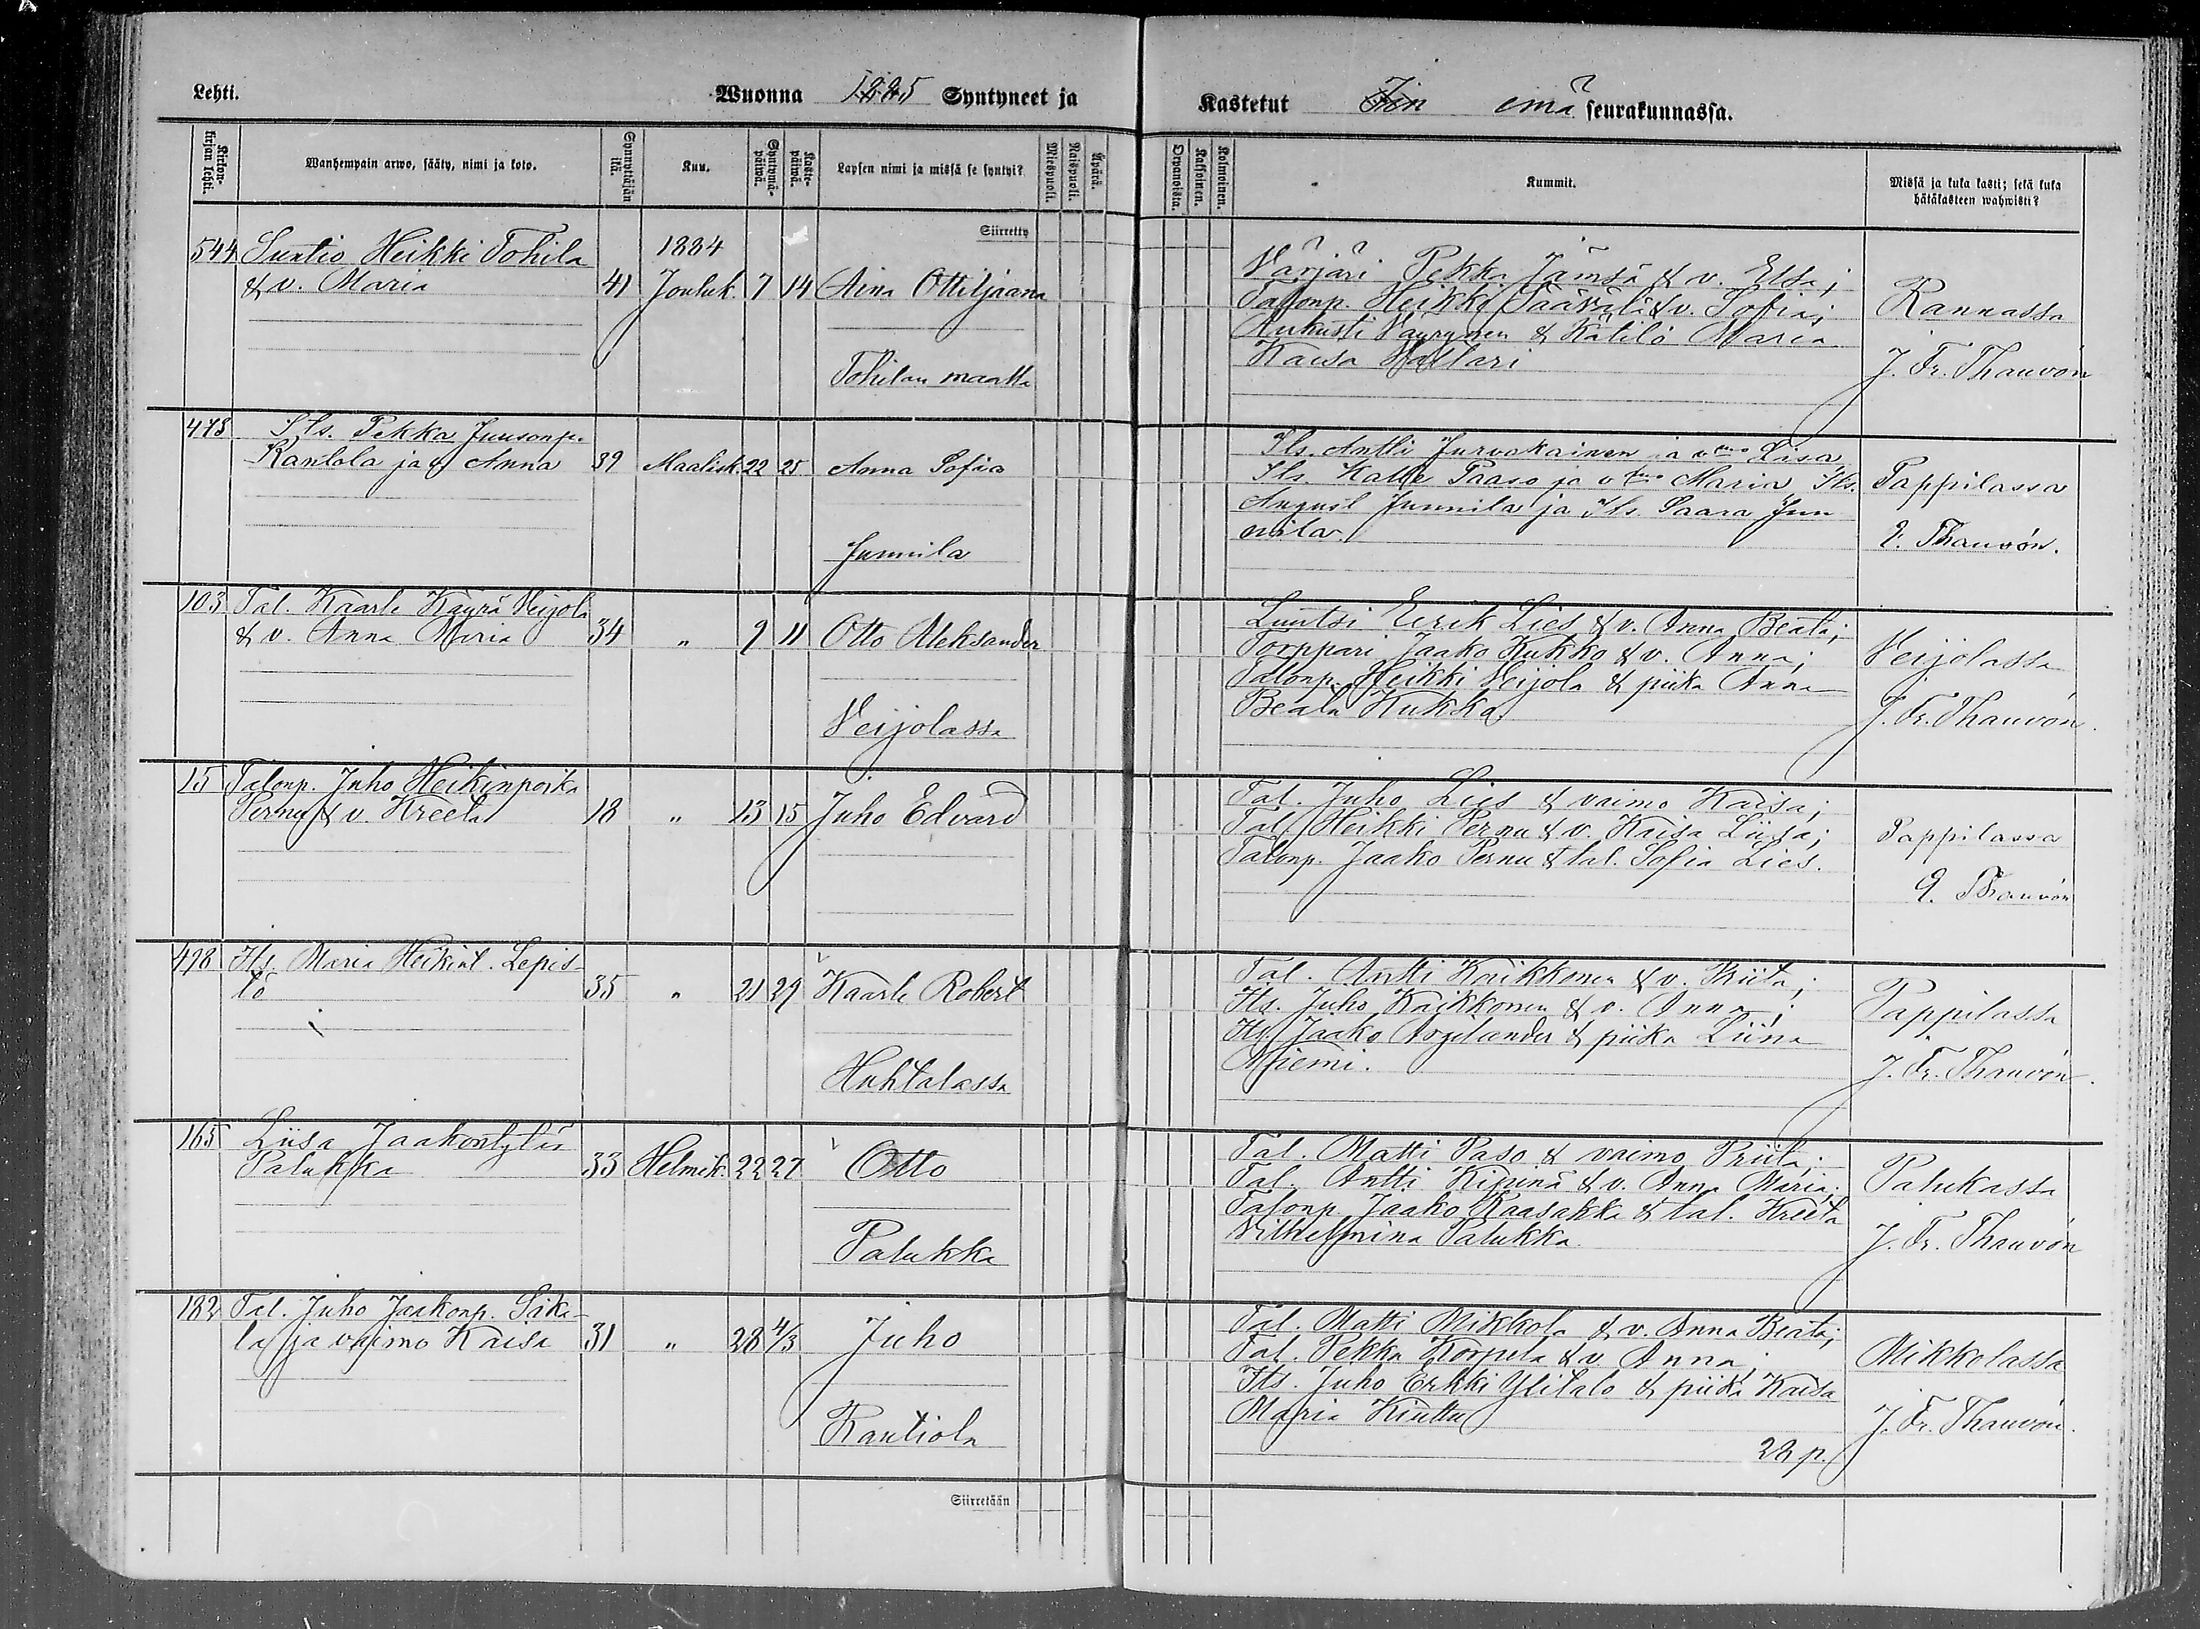 Lehti.
Wuonna 1885 Syntyneet ja
Kastetut Iin emä seurakunnassa.
Kirkonkirjan lehti.
Wanhempain arwo, sääty, nimi ja koto.
Synnyttäjän ikä.
Kuu.
Syntymäpäiwä.
Kastepäiwä.
Lapsen nimi ja missä se syntyi?
Miespuoli.
Naispuoli.
Äpärä.
Orpanoista.
Kaksoinen.
Kolmoinen.
Kummit.
Missä ja kuka kasti; sekä kuka
hätäkasteen wahwisti?
Siirretty
544 Suntio Heikki Tohila
& v. Maria 41 1884
Jouluk. 7 14 Aina Ottiljaana
Tohilan maatta
Värjäri Pekka Jämsä & v. Elsa;
Talonp. Heikki Säävälä & v. Sofia;
Aukusti Väyrynen & Kätilö Maria
Kaisa Vallari
Rannassa
J. Fr. Thauvón
473 Its. Pekka Juusonp.
Kantola ja v. Anna 39 Maalisk. 22 25 Anna Sofia
Junnila
Its. Antti Jurvakainen ja vmo Liisa,
Its. Kalle Paaso ja vmo Maria, Its.
August Junnila ja Its. Saara Jun
nila.
Pappilassa
Thauvón.
103 Tal. Kaarle Käyrä Veijola
& v. Anna Maria 34 " 9 11 Otto Aleksander
Veijolassa
Luutsi Eerik Lies & v. Anna Beata;
Torppari Jaako Kukko & v. Anna;
Talonp. Heikki Veijola & piika Anna
Beata Kukka
Veijolassa
J. Fr. Thauvón.
15 Talonp. Juho Heikinpoika
Pernu & v. Kreeta 18 " 13 15 Juho Edvard
Tal. Juho Lies & vaimo Kaisa;
Tal. Heikki Pernu & v. Kaisa Liisa;
Talonp. Jaako Pernu & tal. Sofia Lies.
Pappilassa
Thauvón
498 Its. Maria Heikint. Lepis-
tö 35 " 21 29 Kaarle Robert
Huhtalassa
Tal. Antti Kaikkonen & v. Riita;
Its. Juho Kaikkonen & v. Anna;
Its. Jaako & piika Liina
Niemi.
Pappilassa
J. Fr. Thauvón.
165 Liisa Jaakontytär
Palukka 33 Helmik. 22 27 Otto
Palukka
Tal. Matti Paso & vaimo Priita;
Tal. Antti Kipinä & v. Anna Maria;
Talonp. Jaako Raasakka & tal. Kreeta
Vilhelmina Palukka.
Palukassa
J. Fr. Thauvón
182 Tal. Juho Jaakonp. Sika-
la ja vaimo Kaisa 31 " 28 4/3 Juho
Rantiola
Tal. Matti Mikkola & v. Anna Beata;
Tal. Pekka Korpela & v. Anna;
Its. Juho Erkki Ylitalo & piika Kaisa
Maria Kinttu
28 p.
Mikkolassa
J. Fr. Thauvón.
Siirretään